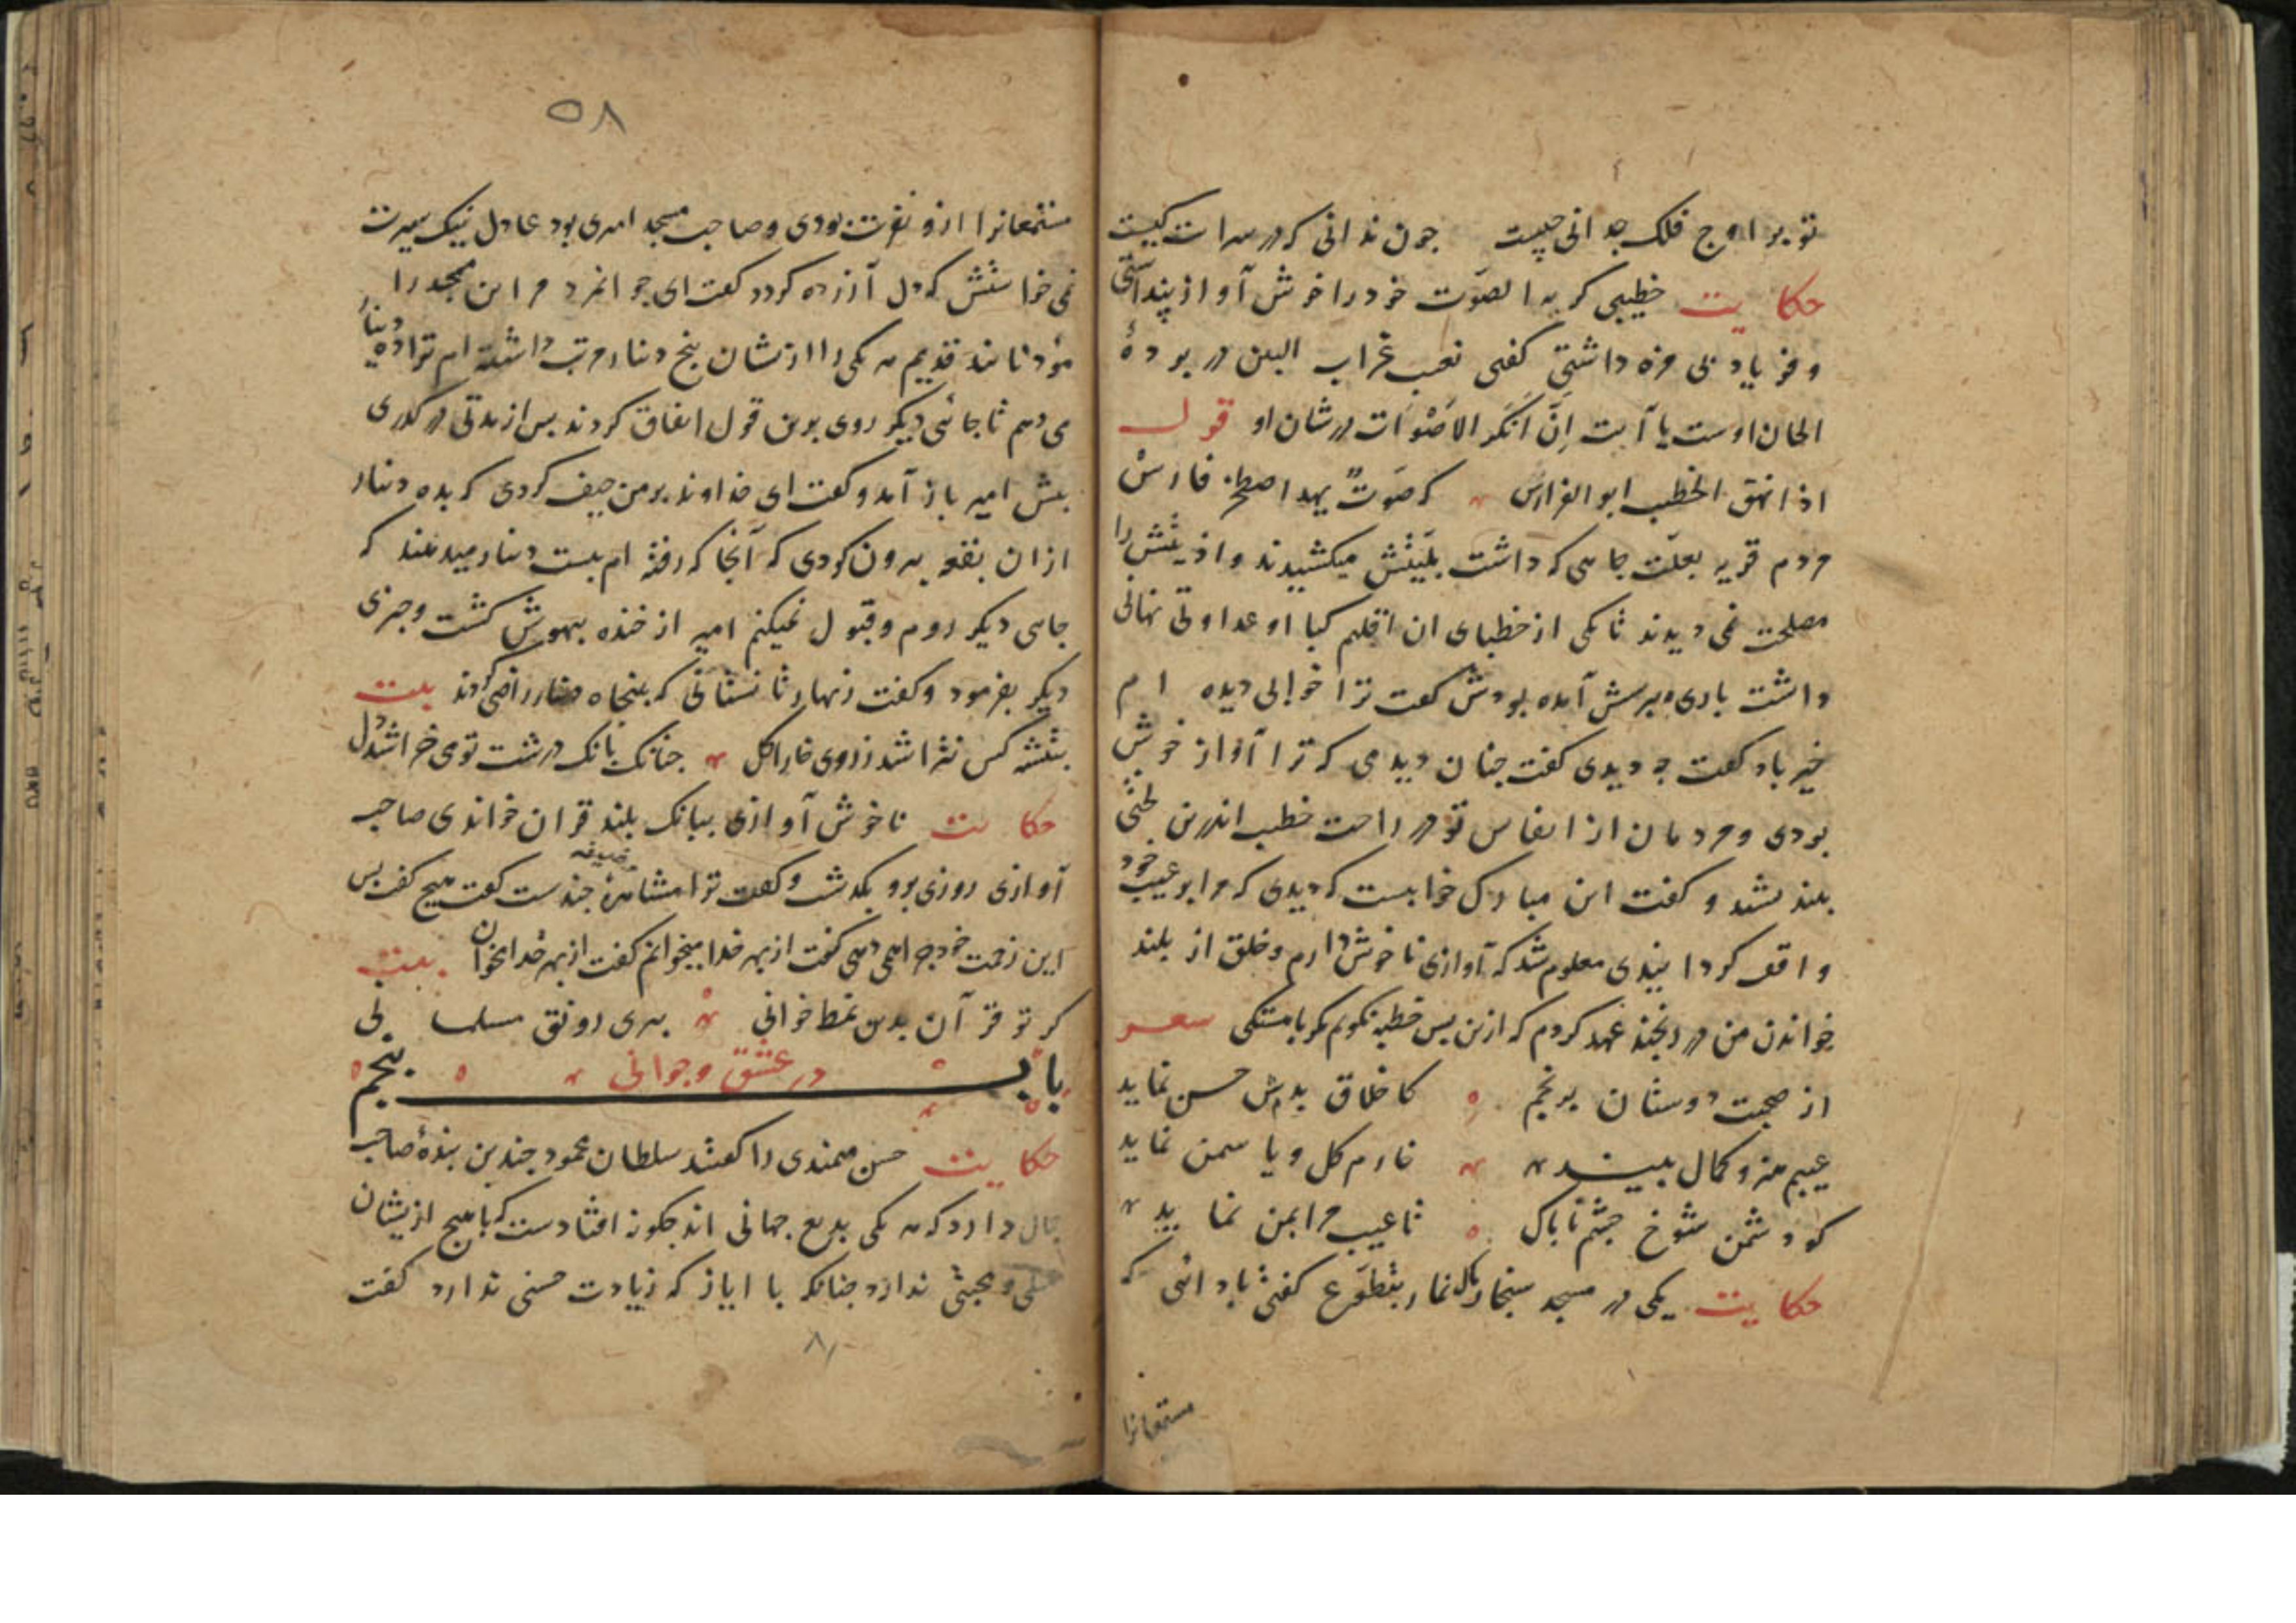 تو بر اوج فلک چه دانی چیست چون ندانی که در سرات کیست
حکایت خطیبی کریه الصوت خود را خوش آواز پنداشتی
و فریاد بی مزه داشتی کفتی نعیب غراب البین در پردهٔ
الحان اوست یا آیت اِنَّ اَنکَر الاَصْوَات در شان او قول
اذا نهق الخطیب ابو الفوارس که صَوتٌ یهد اصطخر فارس
مردم قریه بعلّت جاهی که داشت بلیّتش میکشیدند و اذیتش را
مصلحت نمی دیدند تا یکی از خطبای ان اقلیم کبا او عداوتی نهانی
داشت باری بپرسش آمده بودش کفت ترا خوابی دیده ام
خیر باد کفت چه دیدی کفت چنان دیدمی که ترا آواز خوش
بودی و مردمان از انفاس تو در راحت خطیب اندرین لختی
بلند شد و کفت این مبارک خوابیست که دیدی که مرا بر عیب خود
واقف کردانیدی معلوم شد که آوازی ناخوش دارم و خلق از بلند
خواندن من در رنجند عهد کردم که ازین پس خطبه نکویم مکر باهستکی شعر
از صحبت دوستان برنجم کاخلاق بدم حسن نماید
عیبم هنر و کمال بیند خارم کل و یا سمن نماید
کو دشمن شوخ چشم ناپاک تا عیب مرا بمن نماید
حکایت یکی در مسجد سنجار بانک نماز بتطوع کفتی باداتی که
مستمعانرا
۵۸
مستمعانرا ازو نفرت بودی و صاحب مسجد امیری بود عادل نیک سیرت
نمی خواستش که دل آزرده کردد کفت ای جوانمرد مر این مسجد را
مؤذنانند قدیم هر یکی را ازیشان پنج دینار مرتب داشته ام ترا ده دینار
می دهم تا جائی دیکر روی برین قول اتفاق کردند پس از مدتی در کذری
پیش امیر باز آمد و کفت ای خداوند بر من حیف کردی که بده دینار
ازان بقعه بیرون کردی که آنجا که رفته ام بیست دینار میدهند که
جای دیکر روم و قبول نمیکنم امیر از خنده بیهوش کشت و چیزی
دیکر بفرمود و کفت زنهار تا نستانی که پنجاه دینار راضی کردند بیت
بتیشه کس نتراشد ز روی خارا کل چنانک بانک درشت تو می خراشد دل
حکایت ناخوش آوازی ببانک بلند قران خواندی صاحب
آوازی روزی برو بکذشت و کفت ترا مشاهره چندست کفت هیچ کفت پس
این زحمت خود چرا همی دهی کفت از بهر خدا میخوانم کفت از بهر خدا مخوان بیت
کر تو قرآن بدین نمط خوانی ببری رونق مسلمانی
باب پنجم
در عشق و جوانی
حکایت حسن میمندی را کفتند سلطان محمود چندین بندهٔ صاحب
جمال دارد که هر یکی بدیع جهانی اند چکونه افتادست که با هیچ ازیشان
میلی و محبتی ندارد چنانکه با ایاز که زیادت حسنی ندارد کفت
۸۱